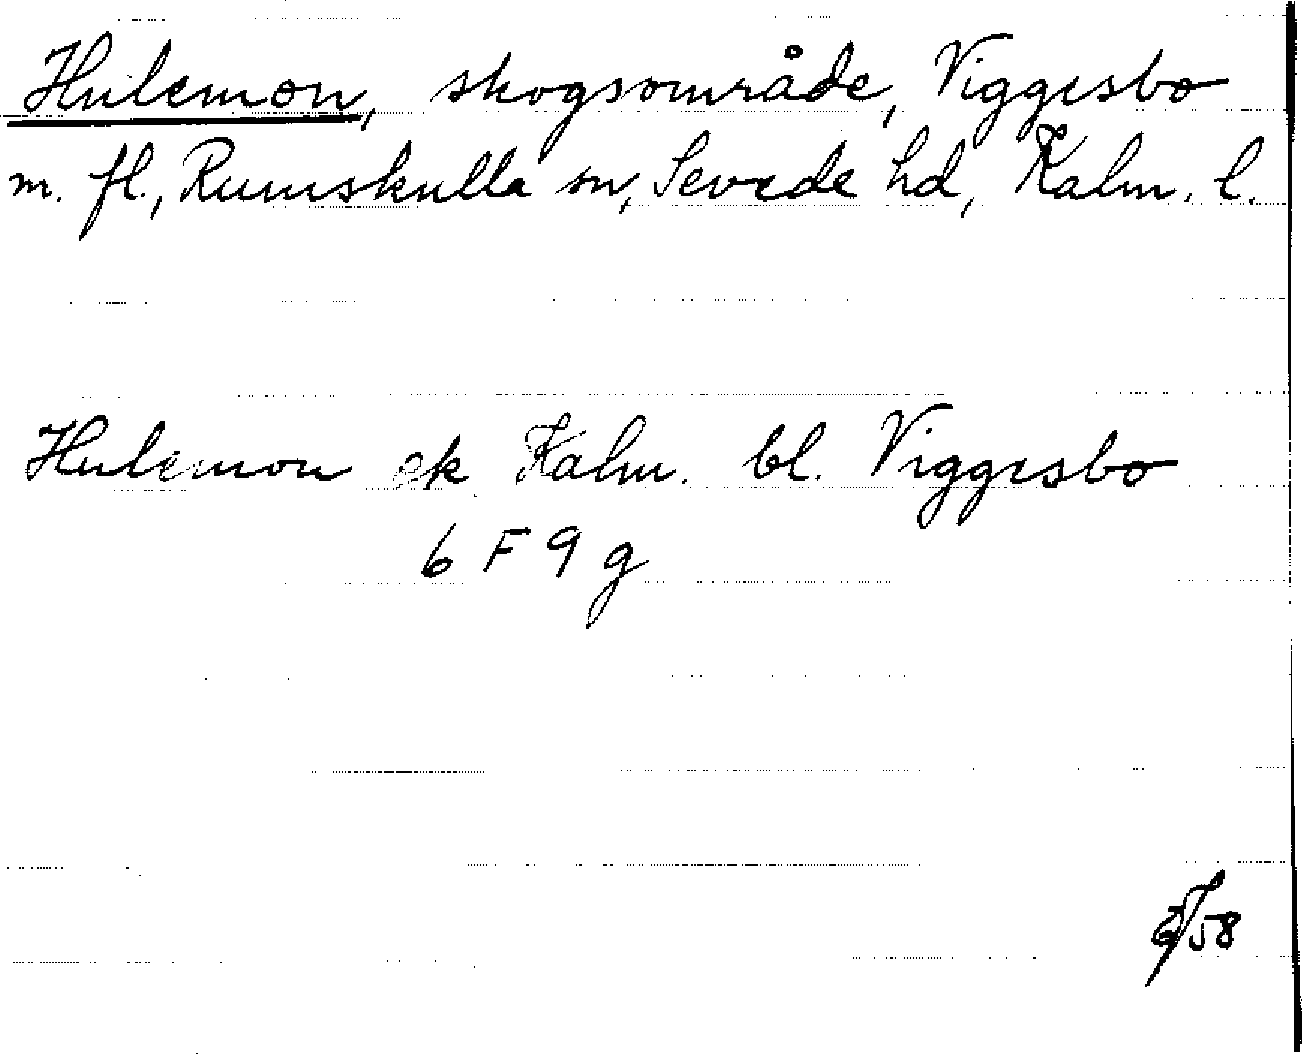 Hulemon, skogsområde, Viggesbo
m. fl., Rumskulla sn, Sevede hd, Kalm. l.
Hulemon ek Kalm. bl. Viggesbo
6 F 9 g
58